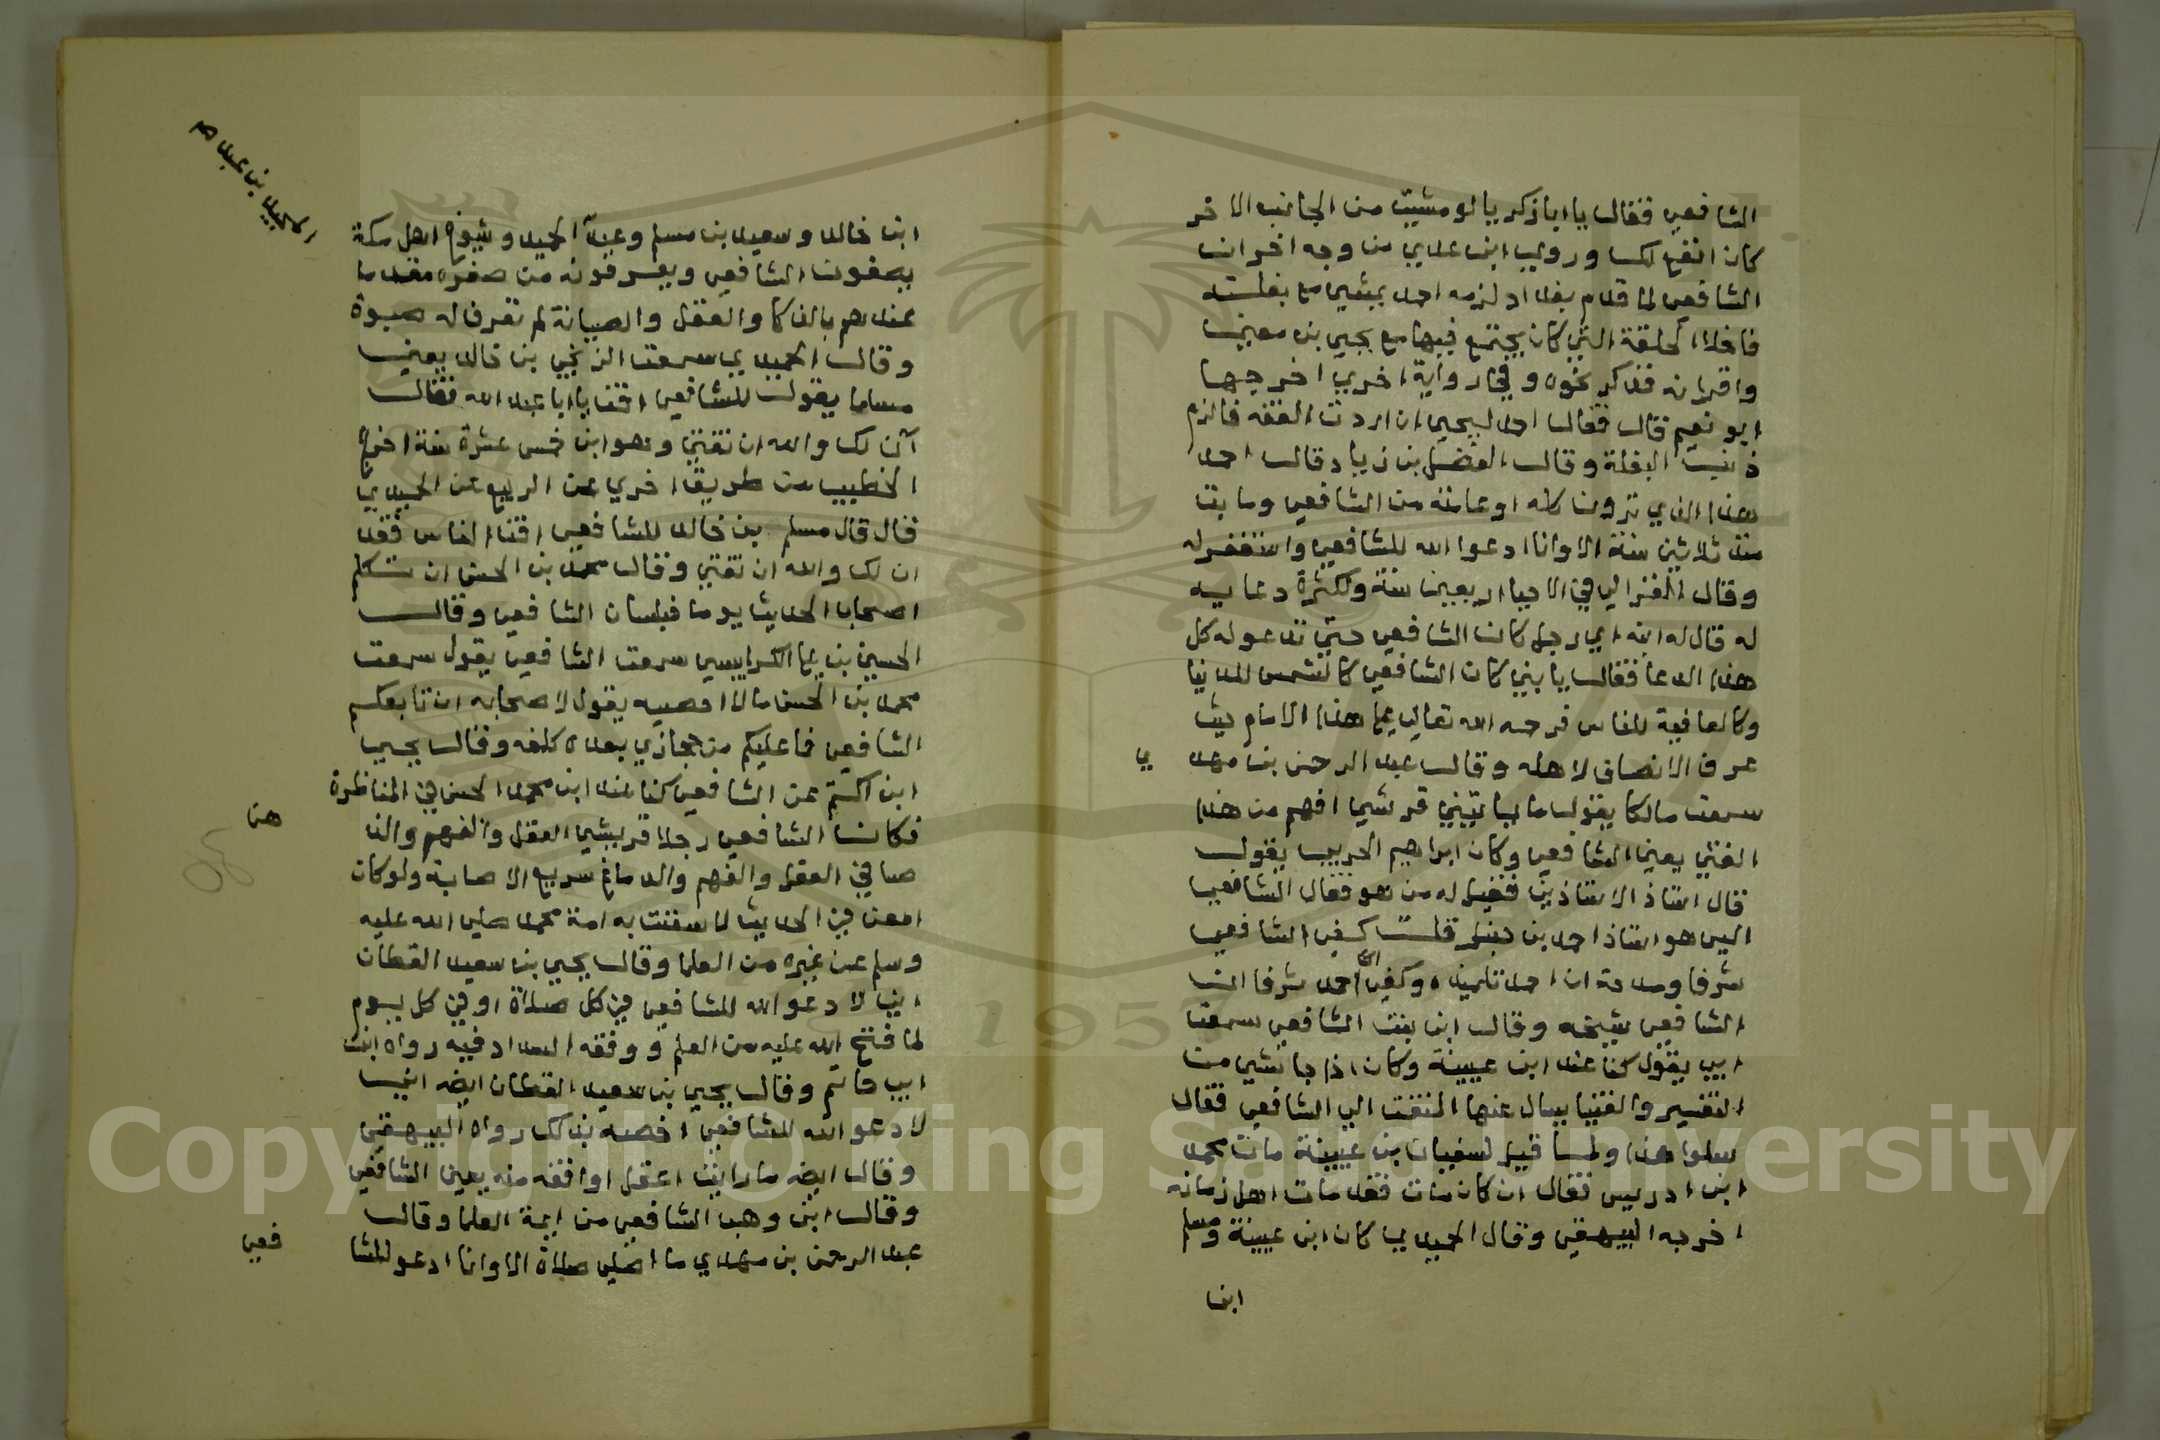 الشافعي فقال يا ابا ذكريا لو مشيت من الجانب الاخر
كان انفع لك وروي ابن عدي من وجه اخر ان
الشافعي لما قدم بغداد لزمه احمد يمشي مع بغلته
فاخلا الحلقة التي كان يجتمع فيها مع يحيي بن معين
واقرانه فذكر نحوه وفي رواية اخري اخرجها
ابو نعيم قال فقال احمد ليحيي ان اردت الفقه فالزم
ذنب البغلة وقال الفضل بن زياد قال احمد
هذا الذي ترون كله او عامته من الشافعي وما بت
منذ ثلاثين سنة الا وانا ادعوا الله للشافعي واستغفر له
وقال الغزالي في الاحيا اربعين سنة ولكثرة دعايه
له قال له ابنه اي رجل كان الشافعي حتي تدعو له كل
هذا الدعا فقال يا بني كان الشافعي كالشمس للدنيا
وكالعافية للناس فرحمه الله تعالي علي هذا الامام حيث
عرف الانصاف لاهله وقال عبد الرحمن بن مهد
ي
سمعت مالكا يقول ما ياتيني قرشي افهم من هذا
الفتي يعني الشافعي وكان ابراهيم الحربي يقول
قال استاذ الاستاذين فقيل له من هو فقال الشافعي
اليس هو استاذ احمد بن حنبل قلت كفي الشافعي
شرفا ومدحة ان احمد تلميذه وكفي احمد شرفا ان
الشافعي شيخه وقال ابن بنت الشافعي سمعت
ابي يقول كنا عند ابن عيينة وكان اذا جا شي من
التفسير والفتيا يسال عنها التفت الي الشافعي فقال
سلوا هذا ولما قيل لسفيان بن عيينة مات محمد
ابن ادريس فقال ان كان مات فقد مات اهل زمانه
اخرجه البيهقي وقال الحميدي كان ابن عيينة ومسلم
ابن
المجيد بن عبد
ابن خالد وسعيد بن مسلم وعبد المجيد وشيوخ اهل مكة
يصفون الشافعي ويعرفونه من صغره مقدما
عندهم بالذكا والعقل والصيانة لم تعرف له صبوة
وقال الحميدي سمعت الزنجي بن خالد يعني
مسلما يقول للشافعي افت يا ابا عبد الله فقال
آن لك والله ان تفتي وهو ابن خمس عشرة سنة اخرج
الخطيب من طريق اخري عن الربيع عن الحميدي
قال قال مسلم بن خالد للشافعي افت الناس فقد
ان لك والله ان تفتي وقال محمد بن الحسن ان تتكلم
اصحاب الحديث يوما فبلسان الشافعي وقال
الحسين بن علي الكرابيسي سمعت الشافعي يقول سمعت
محمد بن الحسن مالا احصيه يقول لاصحابه ان تابعكم
الشافعي فما عليكم من حجازي بعده كلفه وقال يحيي
ابن اكثم عن الشافعي كنا عند ابن محمد الحسن في المناظرة
فكان الشافعي رجلا قريشي العقل والفهم والذ
هن
صافي العقل والفهم والدماغ سريع الاصابة ولو كان
امعن في الحديث لاستغنت به امة محمد صلي الله عليه
وسلم عن غيره من العلما وقال يحيي بن سعيد القطان
اني لادعو الله للشافعي في كل صلاة او في كل يوم
لما فتح الله عليه من العلم ووفقه السداد فيه رواه ابن
ابي حاتم وقال يحيي بن سعيد القطان ايضه اني
لادعو الله للشافعي اخصه بذلك رواه البيهقي
وقال ايضه ما رايت اعقل او افقه منه يعني الشافعي
وقال ابن وهب الشافعي من ايمة العلما وقال
عبد الرحمن بن مهدي ما اصلي صلاة الا وانا ادعو للشا
فعي
Copyright © King Saud University
1957